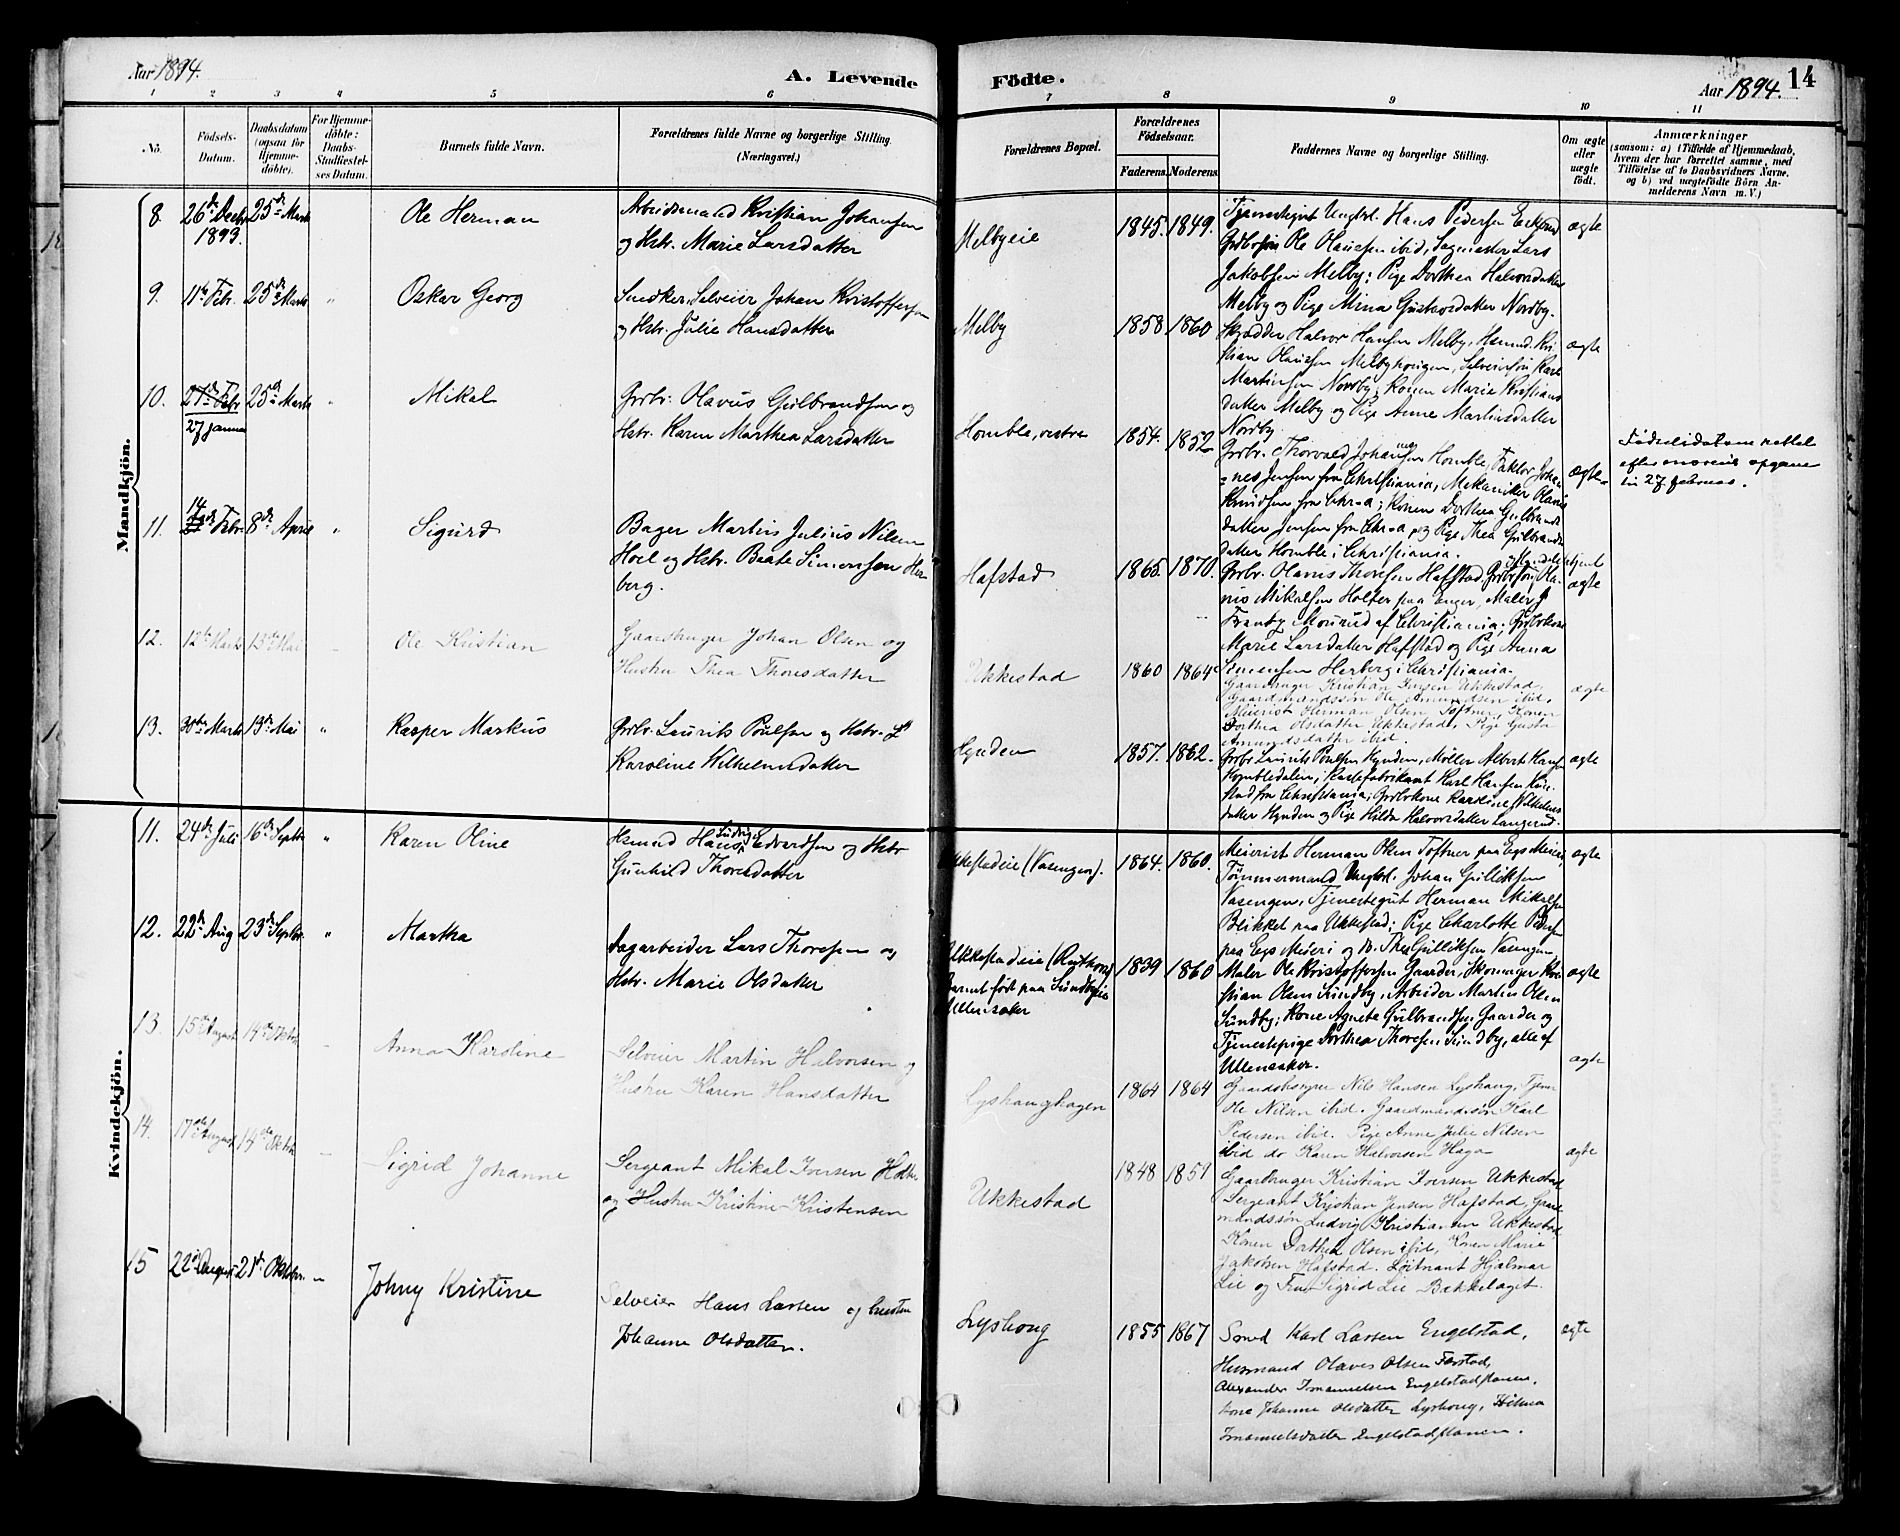 Aar 1894.
A. Levende Födte.
Aar 1894. 14
1 2 3 4 5 6 7 8 9 10 11
No.
Födsels-Datum.
Daabsdatum (ogsaa for Hjemmedöbte).
For Hjemmedöbte: Daabs-Stadfæstelses Datum.
Barnets fulde Navn.
Forældrenes fulde Navne og borgerlige Stilling.
(Næringsvei.)
Forældrenes Bopæl.
Forældrenes Födselsaar.
Faderens. Moderens.
Faddernes Navne og borgerlige Stilling.
Om ægte eller uægte födt.
Anmærkninger
(saasom: a) i Tilfælde af Hjemmedaab,
hvem der har forrettet samme, med
Tilföielse af to Daabsvidners Navne,
og b) ved uægtefödte Börn An-
melderens Navn m. V.)
Mandkjön.
8. 26de Decbr 1893. 25de Marts
Ole Herman
Arbeidsmand Kristian Johansen
og Hstr. Marie Larsdatter
Melbyeie
1845. 1849.
Tjenestegut Ungkl. Hans Pedersen
Grdbrsön Ole Olaussen ibid, Sagmester Lars
Jakobsen Melby; Pige Dorthea Halvorsdatter
Melby og Pige Mina Gustavsdatter Nordby.
ægte
9. 11te Febr. 25de Marts "
Oskar Georg
Snedker, Selveier Johan Kristoffersen
og Hstr. Julie Hansdatter
Melby
1858 1860
Skrædder Halvor Hansen Melby, Husmd. Kri-
stian Olaussen Melbyhougen, Selveiersön Karl
Martinsen Nordby; Konen Marie Kristians
datter Melby og Pige Anne Martinsdatter
Nordby.
ægte
10. 27de Febr 27 januar 25de Marts "
Mikal
Grbr. Olavus Gulbrandsen og
Hstr. Karen Marthea Larsdatter
Homble, vestre
1854. 1852
Grbr. Thorvald Johansen Homble, Faktor Johan
nes Jensen fra Christiania, Mekaniker Olavus
Knudsen fra Chr-a; Konen Dorthea Gulbrands
datter Jensen fra Chr-a og Pige Thea Gulbrands
datter Homble i Christiania.
ægte
Födselsdatum rettet
efter moderens opgave
til 27 februar.
11. 14 Febr 8de April "
Sigurd
Bager Martin Julius Nilsen
Hoel og Hstr. Beate Simensen Her-
berg.
Hafstad
1865. 1870.
Grbr. Olavus Thoresen Hafstad, Grdbrsön Ola-
nis Mikalsen Holter paa Enger, Maler
Marie Larsdatter Hafstad og Pige Anna
Simensen Herberg i Christiania.
ægte
12. 12te Marts 13de Mai "
Ole Kristian
Gaardbruger Johan Olsen og
Hustru Thea Thoresdatter
Ukkestad
1860 1864
Gaardbruger Kristian Iversen Ukkestad,
Gaardmandssön Ole Amundsen ibid,
Meierist Herman Olsen Toftner, Konen
Dorthea Olsdatter Ukkestad, Pige Gusta
Amundsdatter ibid.
ægte
13. 30te Marts 13de Mai "
Kasper Markus
Grbr. Laurits Poulsen og Hstr.
Karoline Wilhelmsdatter
Hynden
1857. 1862.
Grbr Laurits Poulsen Hynden, Möller Albert Hansen
Hombledalen; Kassefabrikant Karl Hansen
stad fra Christiania; Grdbrkone Karoline Wilhelms
datter Hynden og Pige Hilda Halvorsdatter Langerud.
ægte
Kvindekjön.
11. 24de Juli 16de Septbr "
Karen Oline
Husmd Hans Ludvig Edvardsen og Hstr
Gunhild Thoresdatter
Ukkestadeie (Vasengen).
1864. 1860.
Meierist Herman Olsen Toftner paa Egs Meieri,
Tömmermand Ungkl. Johan Gulliksen
Vasengen, Tjenestegut Herman Mikalsen
Blikket paa Ukkestad; Pige Charlotte
paa Egs Meieri og do. Thea Gulliksen Vasengen
ægte
12. 22de Aug 23de Septbr. "
Martha
Dagarbeider Lars Thoresen og
Hstr. Marie Olsdatter
Ukkestadeie
Barnet födt paa Sundbyeie
Ullensaker
1839 1860
Maler Ole Kristoffersen Gaarder, Skomager Kri-
stian Olsen Sundby, Arbeider Martin Olsen
Sundby; Kone Agnete Gulbrandsen Gaarder og
Tjenestepige Dorthea Thoresen Sundby, alle af
Ullensaker.
ægte
13. 15de August 14de Oktbr "
Anna Karoline
Selveier Martin Halvorsen og
Hustru Karen Hansdatter
Lyshaughagen
1864 1864
Gaardbruger Nils Hansen Lyshaug,
Ole Nilsen ibid. Gaardmandssön Karl
Pedersen ibid. Pige Anne Julie Nilsen
ibid do Karen Halvorsen Haga
ægte
14. 17de August 14de Oktbr "
Sigrid Johanne
Sergeant Mikal Iversen Holter
og Hustru Kristine Kristensen
Ukkestad
1848 1859
Gaardbruger Kristian Iversen Ukkestad
Sergeant Kristian Jensen Hafstad, Gaard-
mandssön Ludvig Kristiansen Ukkestad
Konen Dorthea Olsen ibid, Konen Marie
Jakobsen Hafstad. Löitnant Hjalmar
Lie og Frue Sigrid Lie Bækkelaget.
ægte
15 22de August 21de Oktober "
Johny Kristine
Selveier Hans Larsen og hustru
Johanne Olsdatter.
Lyshoug
1855 1867
Smed Karl Larsen Engelstad,
Husmand Olaves Olsen Farstad,
Alexander Imanuelsen Engelstadflaten.
Kone Johanne Olsdatter Lyshoug, Hilma
Imanuelsdatter Engelstadflaten.
ægte